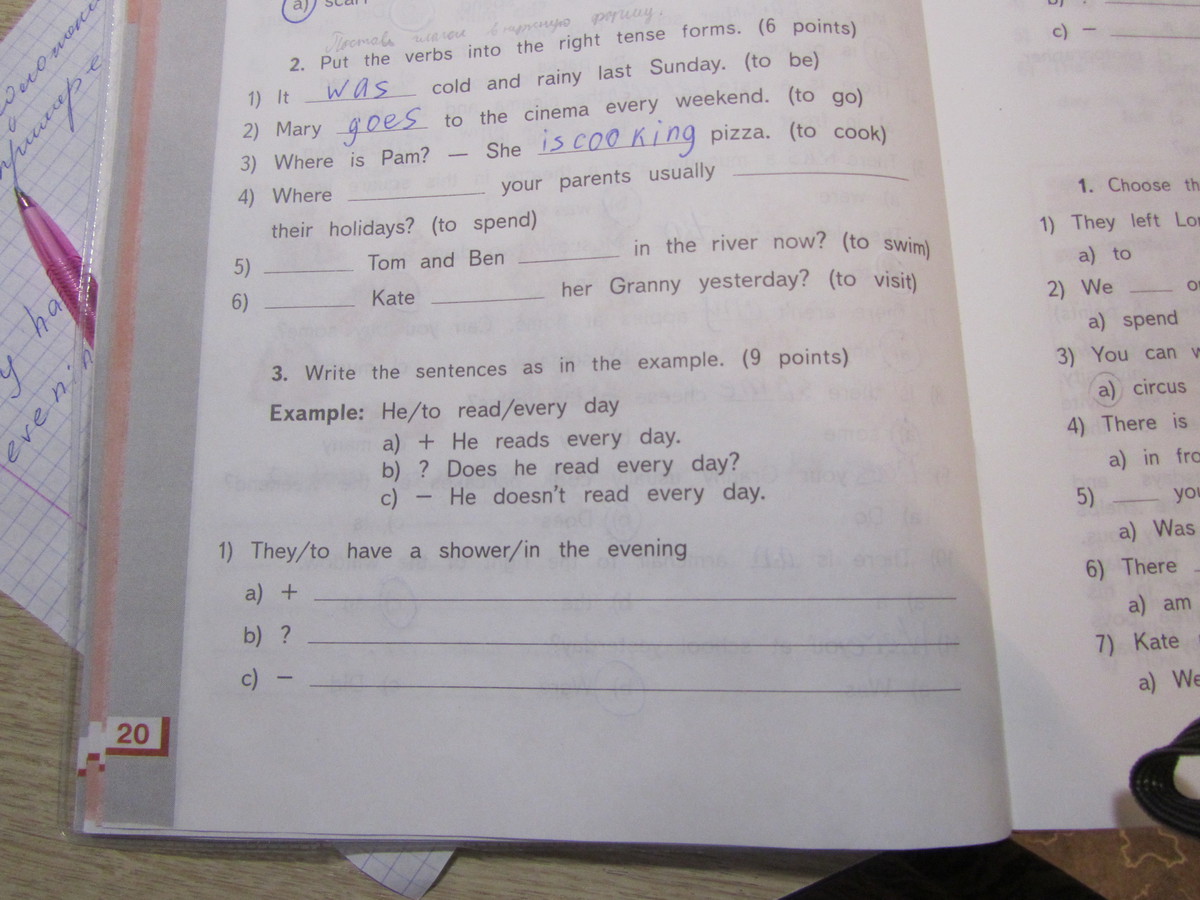 a) scarf
Поставь глагол в нужную форму.
2. Put the verbs into the right tense forms. (6 points)
1) It was cold and rainy last Sunday. (to be)
2) Mary goes to the cinema every weekend. (to go)
3) Where is Pam? — She is cooking pizza. (to cook)
4) Where ______ your parents usually ______
their holidays? (to spend)
5) ______ Tom and Ben ______ in the river now? (to swim)
6) ______ Kate ______ her Granny yesterday? (to visit)
3. Write the sentences as in the example. (9 points)
Example: He/to read/every day
a) + He reads every day.
b) ? Does he read every day?
c) − He doesn't read every day.
1) They/to have a shower/in the evening
a) +
b) ?
c) −
20
b) ?
c) −
1. Choose th
1) They left Lon
a) to
2) We ____ o
a) spend
3) You can w
a) circus
4) There is
a) in fro
5) ____ you
a) Was
6) There
a) am
7) Kate
a) We